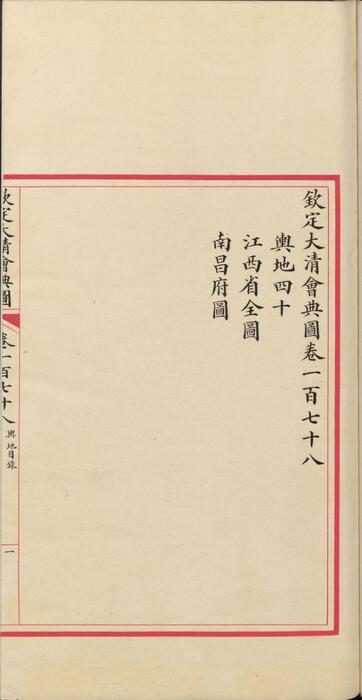 欽定大清會典圖卷一百七十八
輿地四十
江西省全圖
南昌府圖
欽定大清會典圖
卷一百七十八
輿地目錄
一